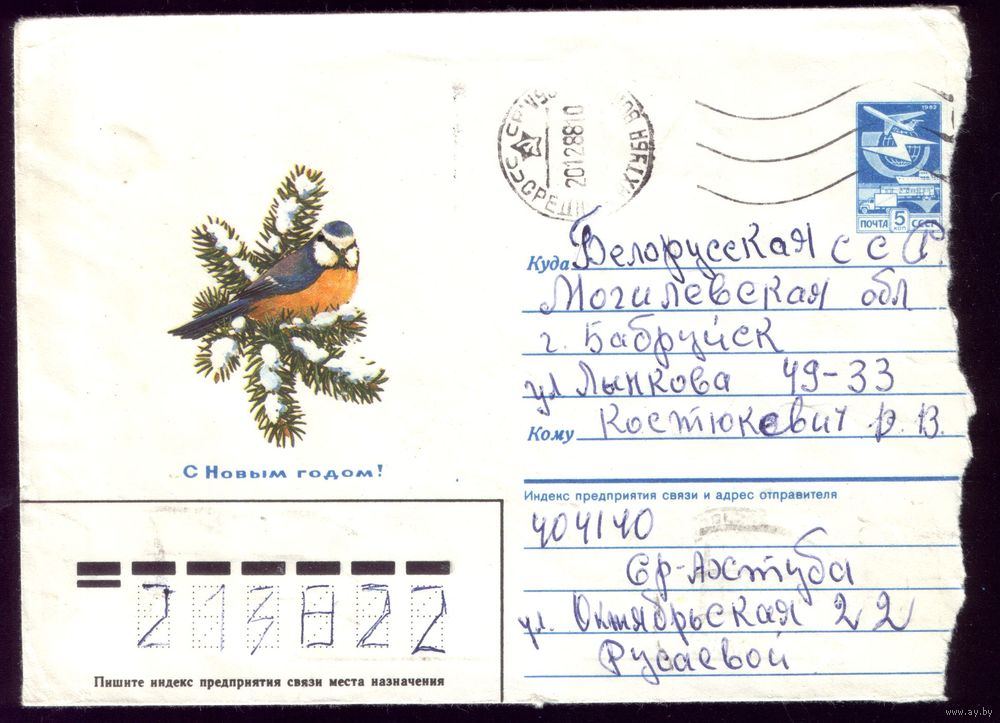 1982
ПОЧТА 5 КОП СССР
2012 88 10
Куда Белорусская С С Р.
Могилевская обл
г. Бабруйск
ул Лынкова 49-33
Кому Костюкевич Р. В.
С Новым годом!
Индекс предприятия связи и адрес отправителя
404140
Ср-Ахтуба
ул. Октябрьская 22
Русаевой
213822
Пишите индекс предприятия связи места назначения
www.ay.by